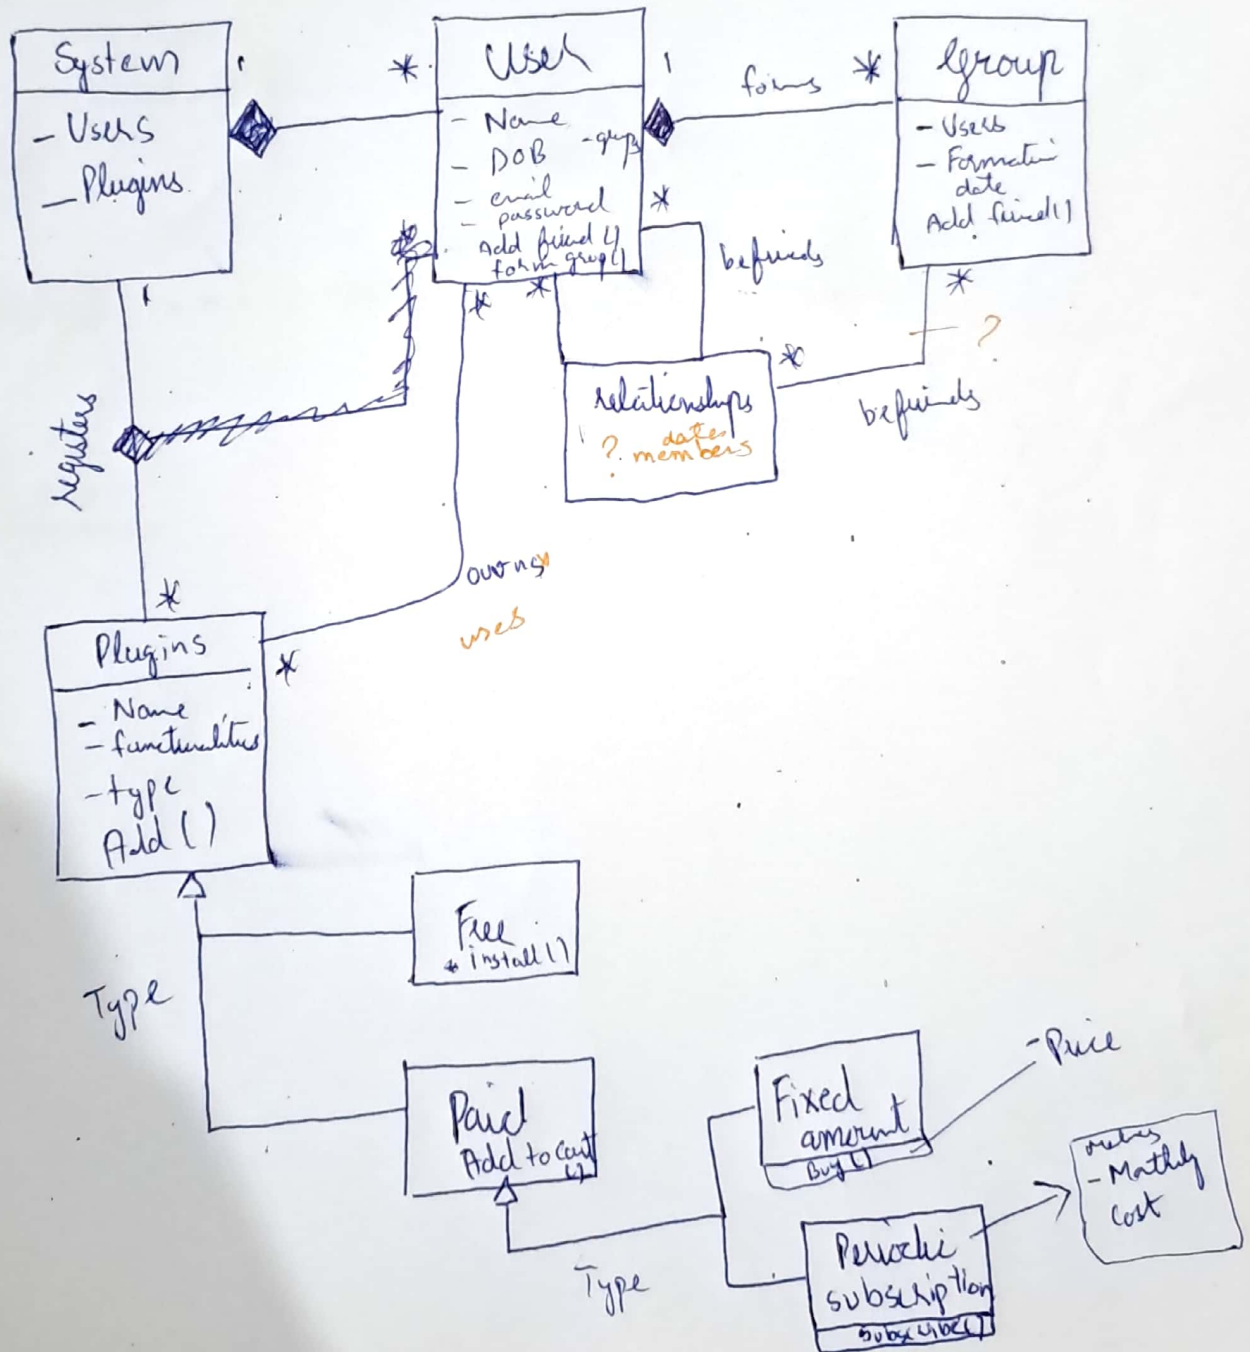 System
- Users
- Plugins
1
*
User
- Name
- DOB
- groups
- email
- password
Add friend ()
form group ()
1
forms
*
Group
- Users
- Formation
date
Add friend ()
*
befriends
*
*
*
relationships
? dates
members
*
befriends
?
1
registers
*
owns
uses
*
Plugins
- Name
- functionalities
- type
Add ()
Type
Free
* install ()
Paid
Add to cart
()
Type
Fixed
amount
Buy ()
- Price
Periodic
subscription
subscribe ()
- Monthly
Cost